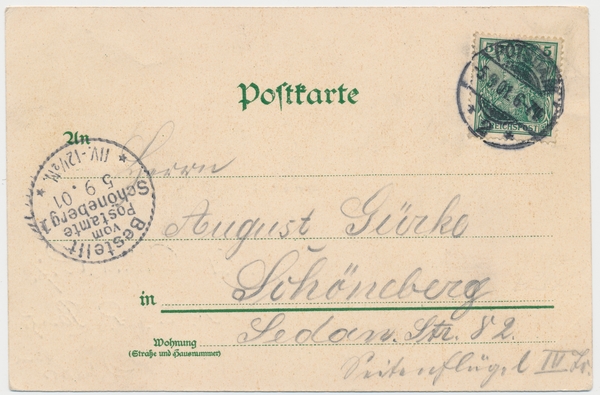 Postkarte
5
POTSDAM
5.9.01.6-7N.
* 2 *
REICHSPOST
An
Herrn
11V.-12½N.
5.9.01
Bestellt
vom
Postamte
Schöneberg 1
August Gürke
in Schöneberg
Sedan. Str. 82.
Wohnung
(Straße und Hausnummer)
Seitenflügel IV Tr.